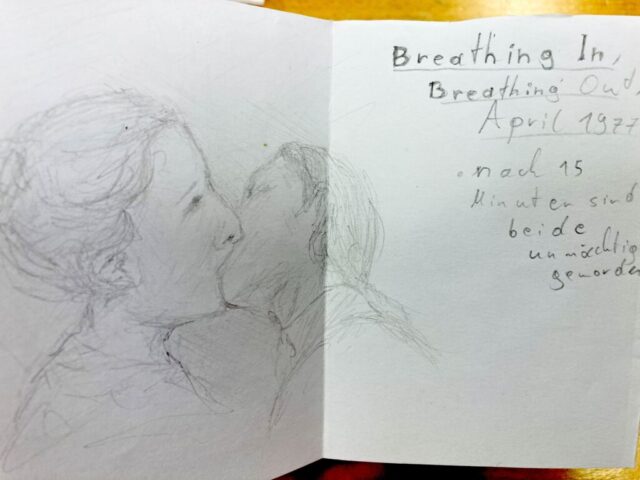 Breathing In,
Breathing Out,
April 1977
. nach 15
Minuten sind
beide
unmächtig
geworden